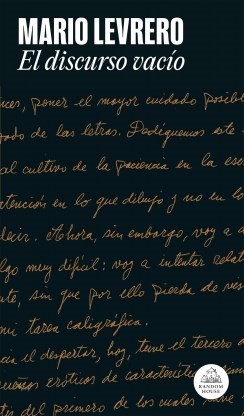 MARIO LEVRERO
El discurso vacío
ces, poner el mayor cuidado posible
ado de las letras. Dediquemos este
al cultivo de la paciencia en la esc
atención en lo que dibujo y no en lo
decir. Ahora, sin embargo, voy a a
lgo muy difícil: voy a intentar relat
te, sin que por ello pierda de vis
mi tarea caligráfica.
al despertar, hoy, tuve el tercero
ueños eróticos de característi
primero de los cuales
RANDOM
HOUSE